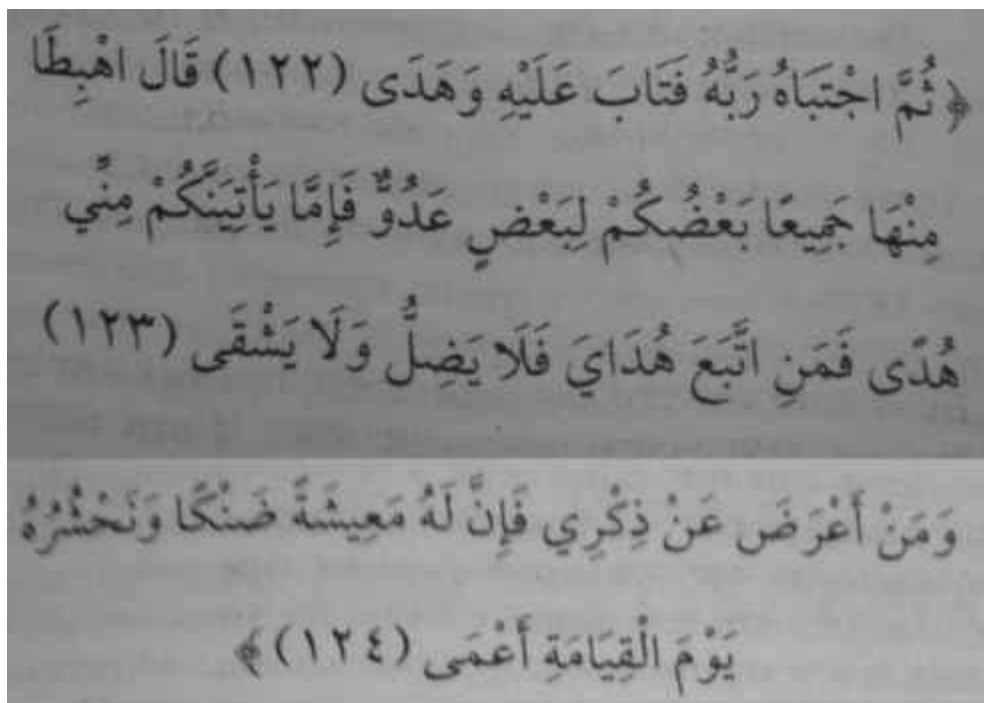 ﴿ ثُمَّ اجْتَبَاهُ رَبُّهُ فَتَابَ عَلَيْهِ وَهَدَى (١٢٢) قَالَ اهْبِطَا
مِنْهَا جَمِيعًا بَعْضُكُمْ لِبَعْضٍ عَدُوٌّ فَإِمَّا يَأْتِيَنَّكُمْ مِنِّي
هُدًى فَمَنِ اتَّبَعَ هُدَايَ فَلَا يَضِلُّ وَلَا يَشْقَى (١٢٣)
وَمَنْ أَعْرَضَ عَنْ ذِكْرِي فَإِنَّ لَهُ مَعِيشَةً ضَنْكًا وَنَحْشُرُهُ
يَوْمَ الْقِيَامَةِ أَعْمَى (١٢٤) ﴾